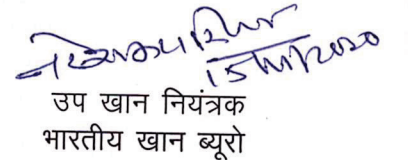 15/11/2020
उप खान नियंत्रक
भारतीय खान ब्यूरो